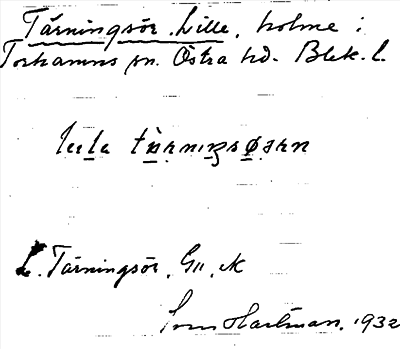 Tärningsör, Lille, holme i
Torhamns sn. Östra hd. Blek. l.
lıla tärnıŋsøʀn
L. Tärningsör, GII, K
Sven Hartman, 1932